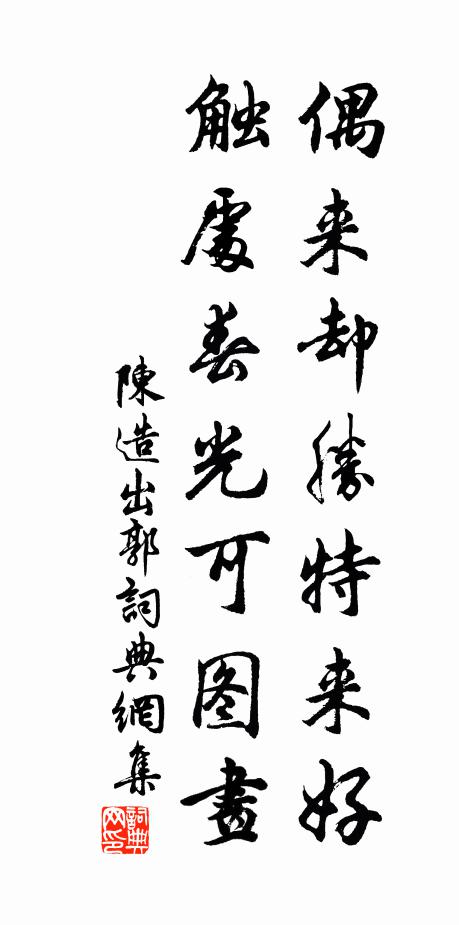 偶来却勝特来好
触處春光可图畫
陳造出郭詞典網集
詞典网印